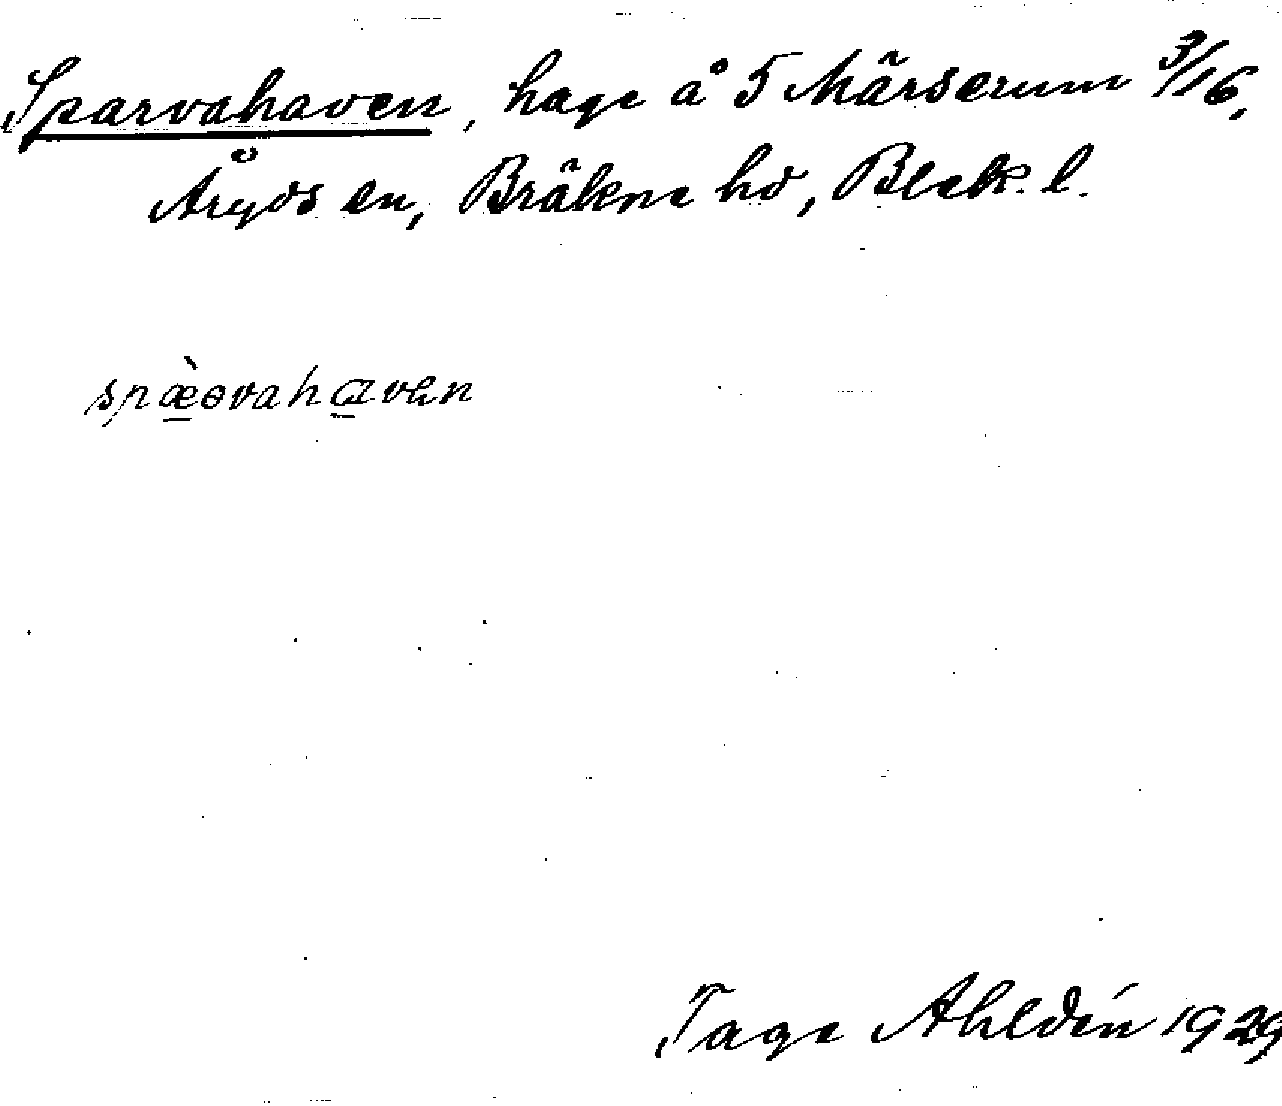 Sparvahaven, hage å 5 Märserum 3/16,
Åryds sn, Bräkne hd, Blek. l.
spæ̀ɵvahavən
Tage Ahldén 1929